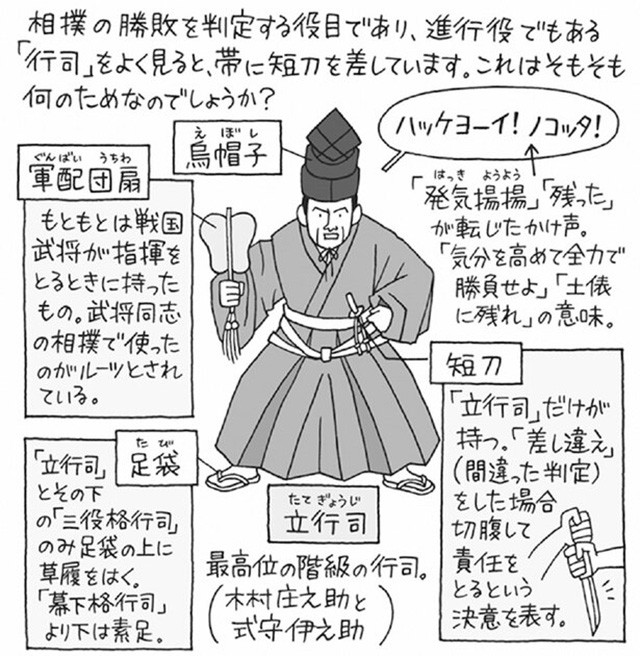 相撲の勝敗を判定する役目であり、進行役でもある
「行司」をよく見ると、帯に短刀を差しています。これはそもそも
何のためなのでしょうか?
ハッケヨーイ! ノコッタ!
はっき ようよう
「発気揚揚」「残った」
が転じたかけ声。
「気分を高めて全力で
勝負せよ」「土俵
に残れ」の意味。
えぼし
烏帽子
ぐんばい うちわ
軍配団扇
もともとは戦国
武将が指揮を
とるときに持った
もの。武将同志
の相撲で使った
のがルーツとされ
ている。
短刀
「立行司」だけが
持つ。「差し違え」
(間違った判定)
をした場合
切腹して
責任を
とるという
決意を表す。
たび
足袋
「立行司」
とその下
の「三役格行司」
のみ足袋の上に
草履をはく。
「幕下格行司」
より下は素足。
たてぎょうじ
立行司
最高位の階級の行司。
(木村庄之助と
式守伊之助)